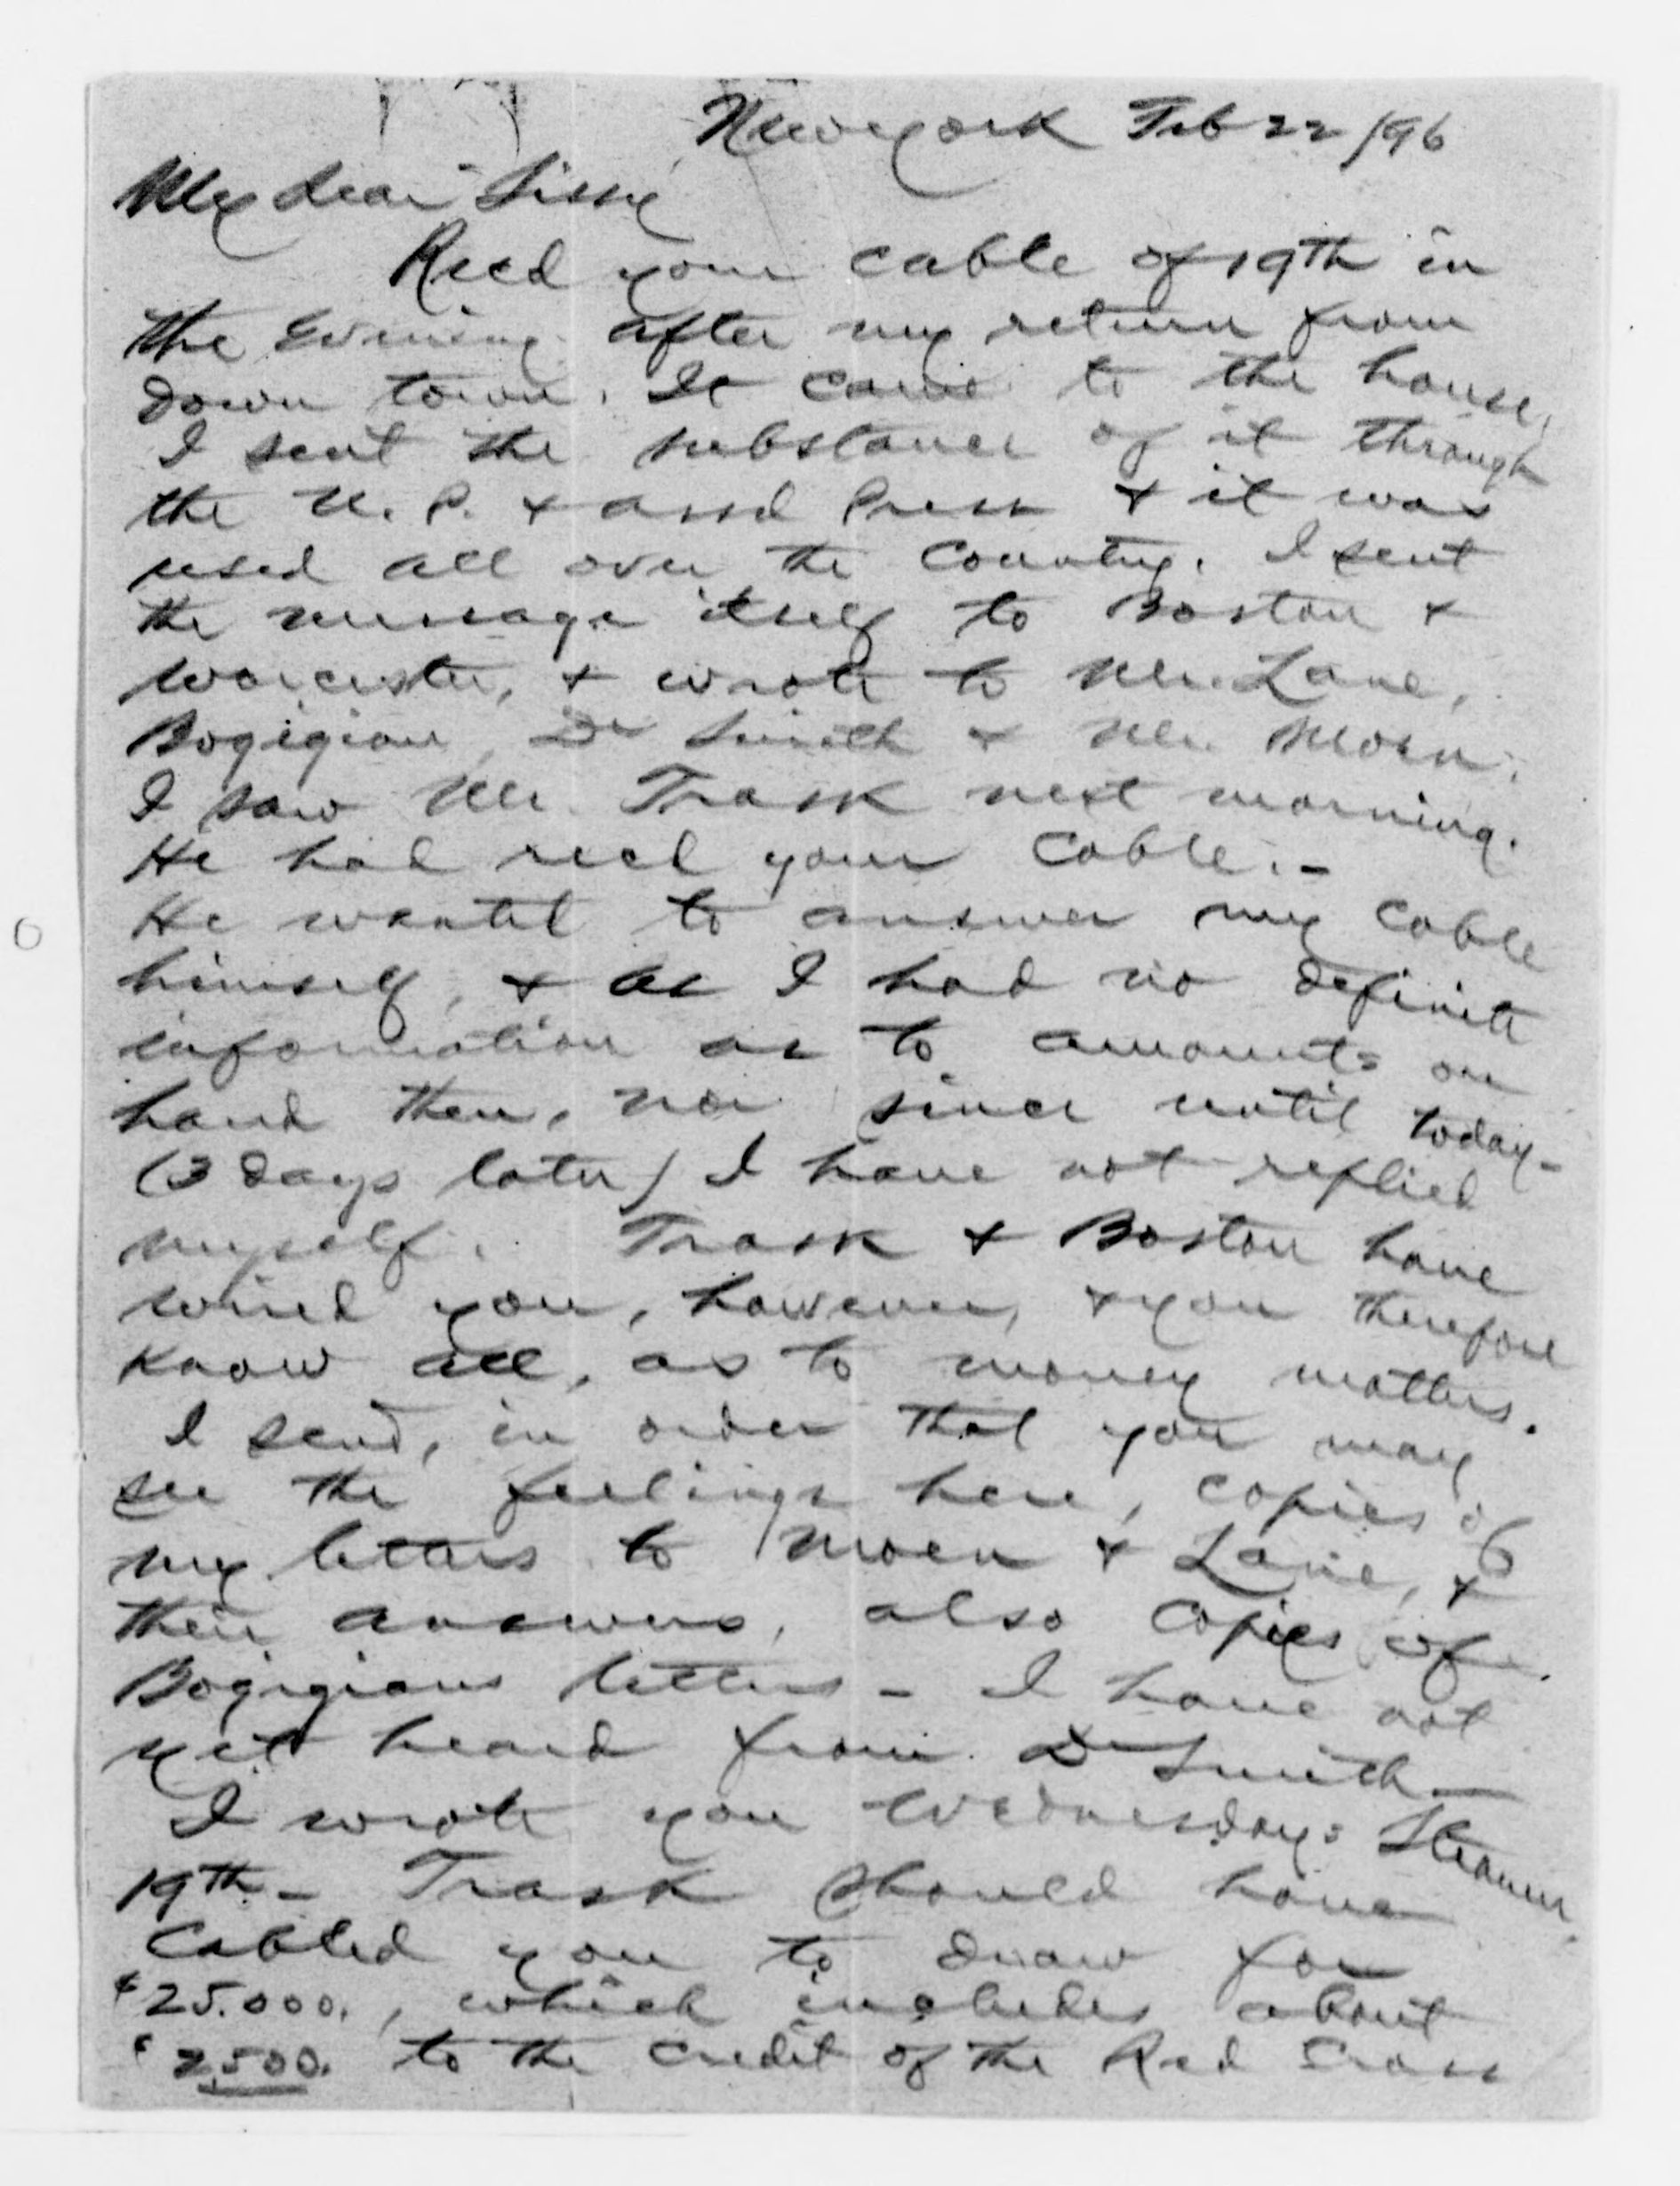 New York Feb 22/96
My dear Sissy
Recd your cable of 19th in
the evening after my return from
down town. It came to the house,
I sent the substance of it through
the U. P. & assd Press & it was
used all over the Country. I sent
the message itself to Boston &
Worcester, & wrote to Mr. Lane,
Bogigian, Dr Smith & Mr. Moen.
I saw Mr. Trask next morning.
He had recd your Cable. -
He wanted to answer my cable
himself, & as I had no definite
information as to amounts on
hand then, nor since until today -
(3 days later) I have not replied
myself. Trask & Boston have
wired you, however, & you therefore
know all, as to money matters.
I send, in order that you may
see the feelings here, copies of
my letters to Moen & Lane, &
their answers, also Copies of
Bogigians letters - I have not
yet heard from Dr Smith -
I wrote you Wednesdays Steamer
19th - Trask should have
Cabled you to draw for
$25.000., which includes about
$2500. to the credit of the Red Cross